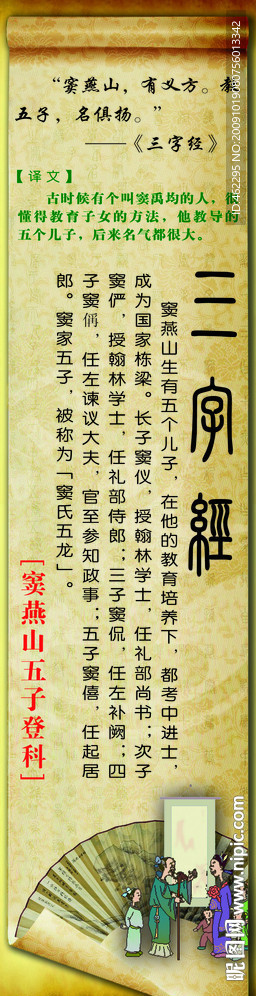 “窦燕山，有义方。教
五子，名俱扬。”
——《三字经》
【译文】
古时候有个叫窦禹均的人，很
懂得教育子女的方法，他教导的
五个儿子，后来名气都很大。
三字經
窦燕山生有五个儿子，在他的教育培养下，都考中进士，
成为国家栋梁。长子窦仪，授翰林学士，任礼部尚书；次子
窦俨，授翰林学士，任礼部侍郎；三子窦侃，任左补阙；四
子窦偁，任左谏议大夫，官至参知政事；五子窦僖，任起居
郎。窦家五子，被称为「窦氏五龙」。
[窦燕山五子登科]
ID:462295 NO:20091019080756013342
昵图网 www.nipic.com